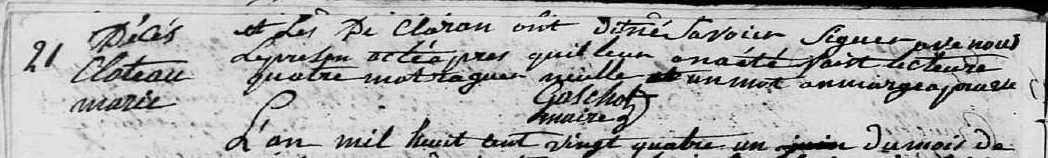 21 Décés Cloteau marie
et Les Dt Claran ônt dit né Savoier Signer ave nous
Lepresen acté apres quil leur en a été fait lecteure
quatre mot raguer nulle et un mot an marge aprouvé
Gaschot
maire
L'an mil huit cent vingt quatre un juin du mois de